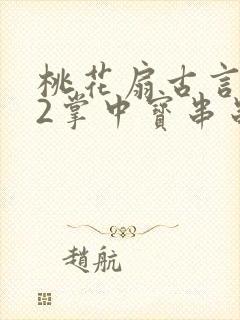 桃花扇古言
2掌中寳串
趙航